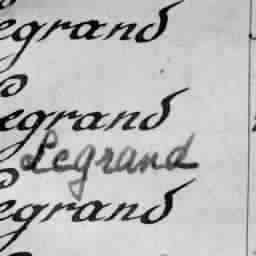 egrand
Legrand
Legrand
Legrand